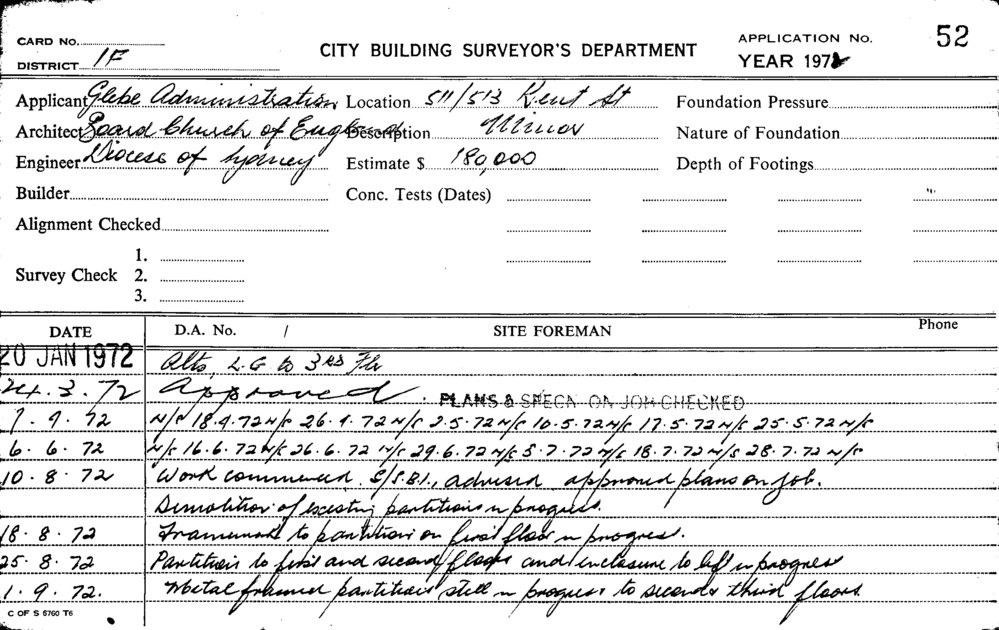 CARD No.
CITY BUILDING SURVEYOR'S DEPARTMENT
APPLICATION No. 52
DISTRICT 1F
YEAR 1972
Applicant Glebe Administration Location 511/513 Kent St Foundation Pressure
Architect Board Church of England Description Minor Nature of Foundation
Engineer Diocese of Sydney Estimate $ 180,000 Depth of Footings
Builder Conc. Tests (Dates)
Alignment Checked
1.
Survey Check 2.
3.
DATE D.A. No. / SITE FOREMAN Phone
20 JAN 1972 Alts, L.G to 3RD Flr
24.3.72 Approved. PLANS & SPECN ON JOB CHECKED
N/C 18.4.72 N/C 26.4.72 N/C 2.5.72 N/C 10.5.72 N/C 17.5.72 N/C 25.5.72 N/C
6.6.72 N/C 16.6.72 N/C 26.6.72 N/C 29.6.72 N/C 5.7.72 N/C 18.7.72 N/S 28.7.72 N/C
10.8.72 Work commenced. advised approved plans on job.
Demolition of existing partitions in progress.
18.8.72 Framework to partition on first floor in progress.
25.8.72 Partitions to first and second floors and enclosure to lift in progress
1.9.72. Metal framed partitions still in progress to second & third floors.
C OF S 6760 T6